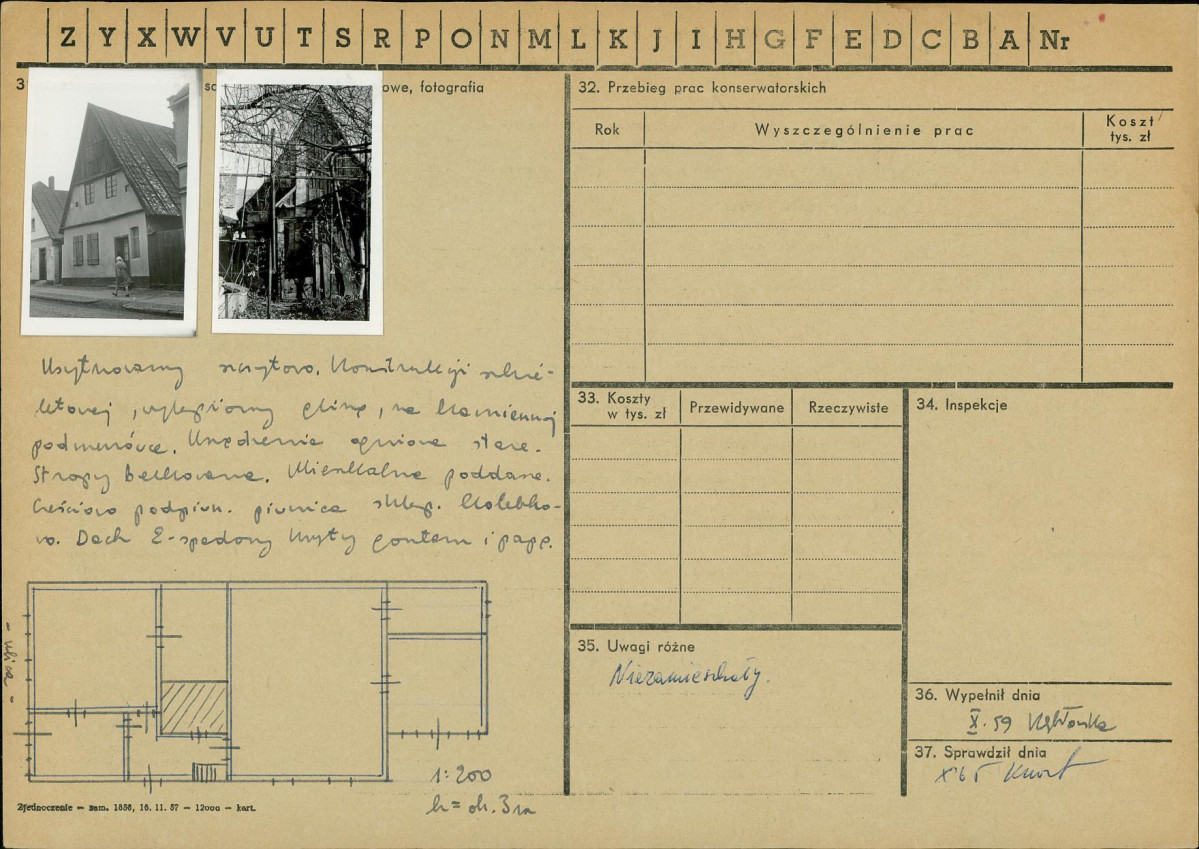 Z Y X W V U T S R P O N M L K J I H G F E D C B A Nr
3
owe, fotografia
Usytuowany szczytowo. Konstrukcji szkie-
letowej, wylepiony gliną, na kamiennej
podmurówce. Urządzenia ogniowe stare.
Stropy belkowane. Mieszkalne poddasze.
Częściowo podpiwn. piwnica sklep. kolebko-
wo. Dach 2-spadowy kryty gontem i papą.
- ulica -
1:200
h = ok. 3 m
Zjednoczenie — zam. 1858, 16. 11. 57 — 12000 — kart.
32. Przebieg prac konserwatorskich
Rok Wyszczególnienie prac Koszt
tys. zł
33. Koszty
w tys. zł Przewidywane Rzeczywiste
34. Inspekcje
35. Uwagi różne
Niezamieszkały.
36. Wypełnił dnia
X. 59
37. Sprawdził dnia